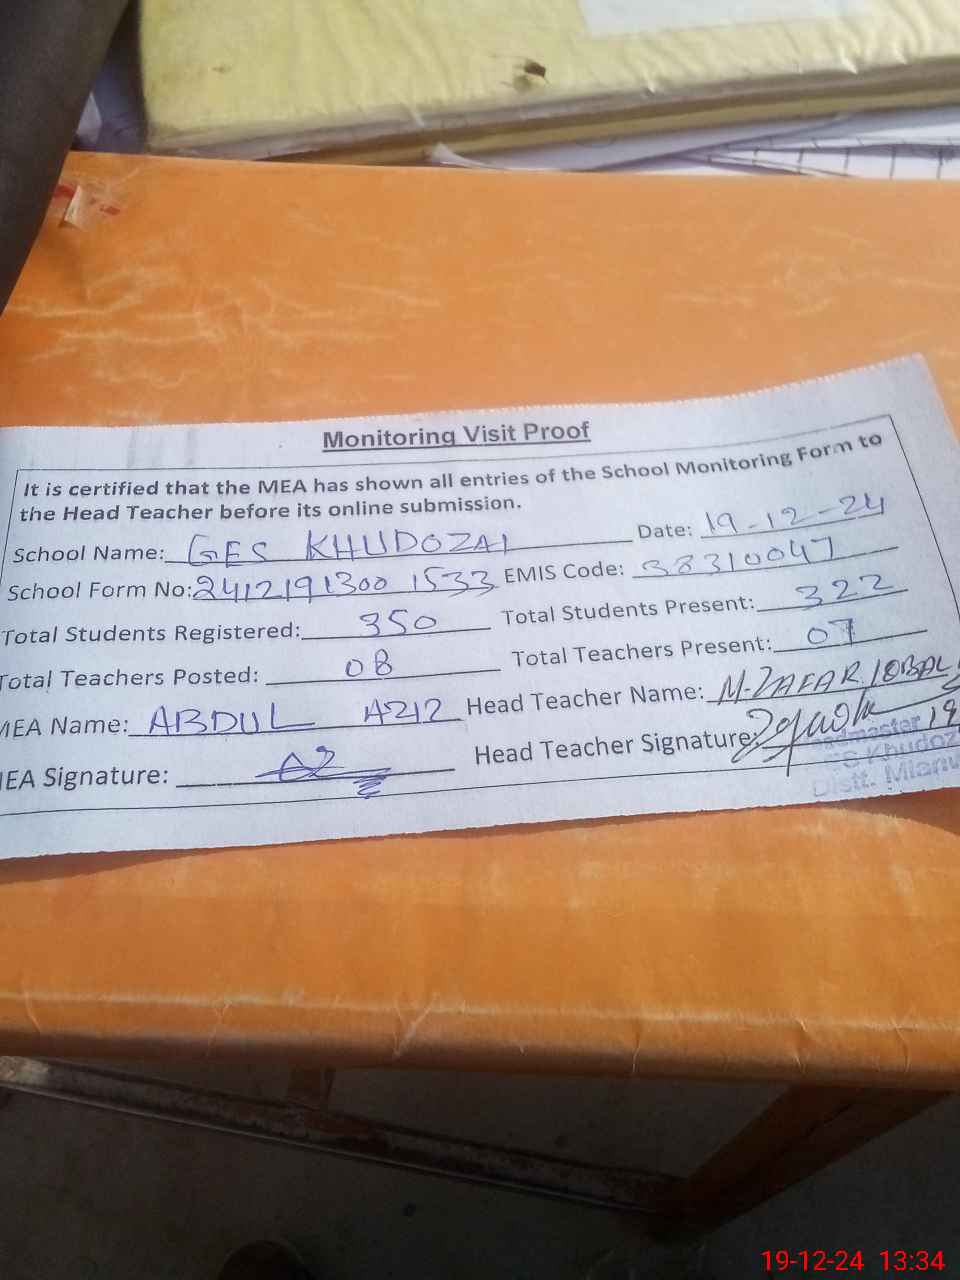 Monitoring Visit Proof
It is certified that the MEA has shown all entries of the School Monitoring Form to
the Head Teacher before its online submission.
School Name: GES KHUDOZAI Date: 19-12-24
School Form No: 2412191300 1533 EMIS Code: 38310047
Total Students Registered: 350 Total Students Present: 322
Total Teachers Posted: 08 Total Teachers Present: 07
MEA Name: ABDUL AZIZ Head Teacher Name: M. ZAFAR IQBAL
MEA Signature: Head Teacher Signature: 19
Headmaster
GES Khudoz
Distt. Mianw
19-12-24 13:34